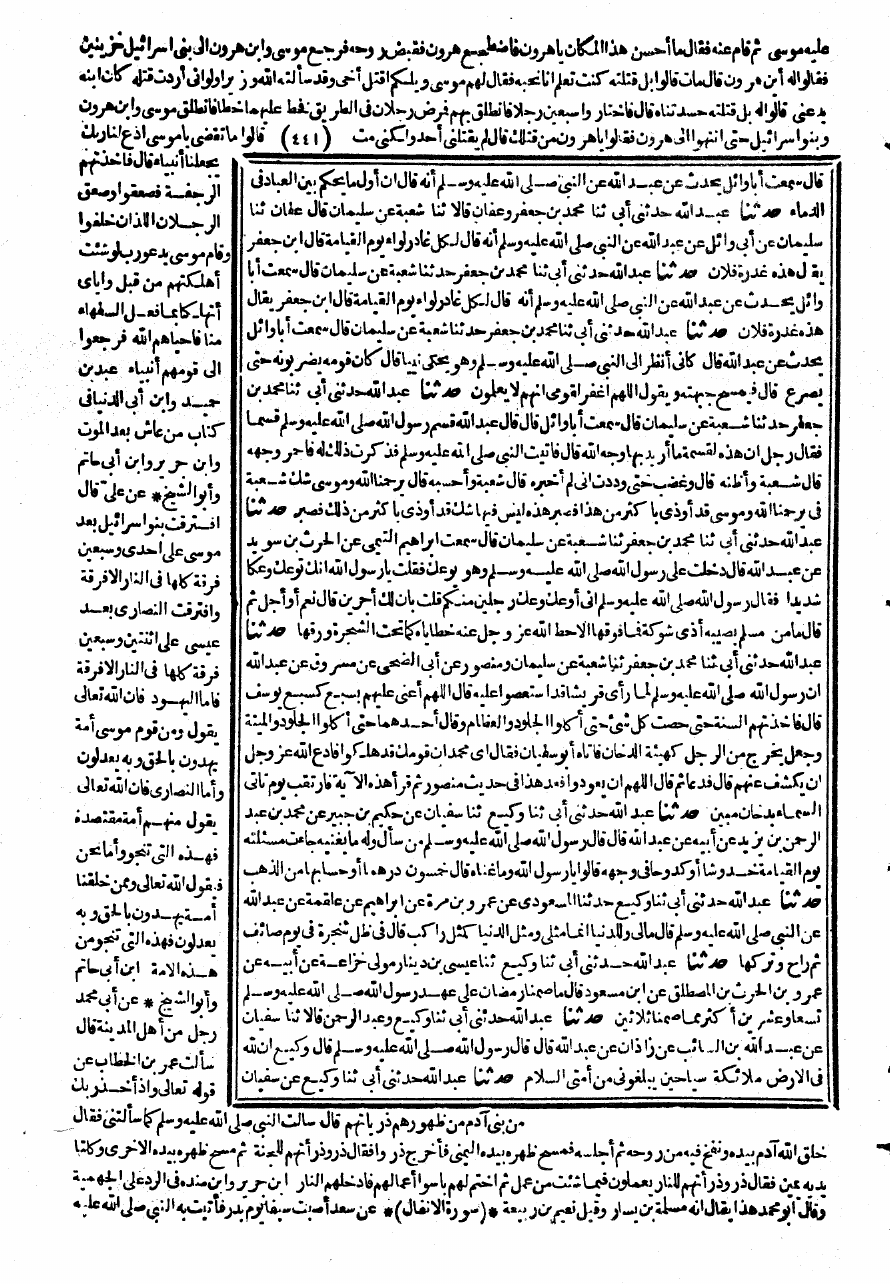 عليه موسى ثم قام عنه فقال ما أحسن هذا المكان ياهرون فاضطجع هرون فقبض روحه فرجع موسى وابن هرون الى بنى اسرائيل حزينين
فقالوا له أين هرون قال مات قالوا بل قتلته كنت تعلم انا نحبه فقال لهم موسى ويلكم اقتل أخى وقد سألته الله وزيرا ولوانى أردت قتله كان ابنه
يدعنى قالوا له بل قتلته حسدتناه قال فاختاروا سبعين رجلا فانطلق بهم فمرض رجلان فى الطريق فخط عليهما خطا فانطلق موسى وابن هرون
وبنو اسرائيل حتى انتهوا الى هرون فقالوا ياهرون من قتلك قال لم يقتلنى أحد ولكنى مت (٤٤١) قالوا ما تقضى ياموسى ادع لنا ربك
يجعلنا أنبياء قال فاخذتهم
الرجفة فصعقوا وصعق
الرجلان اللذان خلفوا
وقام موسى يدعو رب لو شئت
أهلكتهم من قبل واياى
أتهلكنا بما فعل السفهاء
منا فاحياهم الله فرجعوا
الى قومهم أنبياء عبد بن
حميد وابن أبى الدنيا فى
كتاب من عاش بعد الموت
وابن جرير وابن أبى حاتم
وأبو الشيخ * عن على قال
افترقت بنو اسرائيل بعد
موسى على احدى وسبعين
فرقة كلها فى النار الا فرقة
وافترقت النصارى بعد
عيسى على اثنتين وسبعين
فرقة كلها فى النار الا فرقة
فاما اليهود فان الله تعالى
يقول ومن قوم موسى أمة
يهدون بالحق وبه يعدلون
وأما النصارى فان الله تعالى
يقول منهم أمة مقتصدة
فهذه التى تنجو وأما نحن
فيقول الله تعالى وممن خلقنا
أمة يهدون بالحق وبه
يعدلون فهذه التى تنجو من
هذه الامة ابن أبى حاتم
وأبو الشيخ * عن أبى محمد
رجل من أهل المدينة قال
سألت عمر بن الخطاب عن
قوله تعالى واذ أخذ ربك
قال سمعت أبا وائل يحدث عن عبد الله عن النبى صلى الله عليه وسلم أنه قال ان أول ما يحكم بين العباد فى
الدماء حدثنا عبد الله حدثنى أبى ثنا محمد بن جعفر وعفان قالا ثنا شعبة عن سليمان قال عفان ثنا
سليمان عن أبى وائل عن عبد الله عن النبى صلى الله عليه وسلم أنه قال لكل غادر لواء يوم القيامة قال ابن جعفر
يقال هذه غدرة فلان حدثنا عبد الله حدثنى أبى ثنا محمد بن جعفر حدثنا شعبة عن سليمان قال سمعت أبا
وائل يحدث عن عبد الله عن النبى صلى الله عليه وسلم أنه قال لكل غادر لواء يوم القيامة قال ابن جعفر يقال
هذه غدرة فلان حدثنا عبد الله حدثنى أبى ثنا محمد بن جعفر حدثنا شعبة عن سليمان قال سمعت أبا وائل
يحدث عن عبد الله قال كانى أنظر الى النبى صلى الله عليه وسلم وهو يحكى نبيا قال كان قومه يضربونه حتى
يصرع قال فيمسح جبهته ويقول اللهم اغفر لقومى انهم لا يعلمون حدثنا عبد الله حدثنى أبى ثنا محمد بن
جعفر حدثنا شعبة عن سليمان قال سمعت أبا وائل قال قال عبد الله قسم رسول الله صلى الله عليه وسلم قسما
فقال رجل ان هذه لقسمة ما أريد بها وجه الله قال فاتيت النبى صلى الله عليه وسلم فذكرت ذلك له فاحمر وجهه
قال شعبة وأظنه قال وغضب حتى وددت انى لم أخبره قال شعبة وأحسبه قال يرحمنا الله وموسى شك شعبة
فى يرحمنا الله وموسى قد أوذى باكثر من هذا فصبر هذه ليس فيها شك قد أوذى باكثر من ذلك فصبر حدثنا
عبد الله حدثنى أبى ثنا محمد بن جعفر ثنا شعبة عن سليمان قال سمعت ابراهيم التيمى عن الحرث بن سويد
عن عبد الله قال دخلت على رسول الله صلى الله عليه وسلم وهو يوعك فقلت يارسول الله انك توعك وعكا
شديدا فقال رسول الله صلى الله عليه وسلم انى أوعك وعك رجلين منكم قلت بان لك أجرين قال نعم أو أجل ثم
قال ما من مسلم يصيبه أذى شوكة فما فوقها الا حط الله عز وجل عنه خطاياه كما تحت الشجرة ورقها حدثنا
عبد الله حدثنى أبى ثنا محمد بن جعفر ثنا شعبة عن سليمان ومنصور عن أبى الضحى عن مسروق عن عبد الله
ان رسول الله صلى الله عليه وسلم لما رأى قريشا قد استعصوا عليه قال اللهم أعنى عليهم بسبع كسبع يوسف
قال فاخذتهم السنة حتى حصت كل شئ حتى أكلوا الجلود والعظام وقال أحدهما حتى أكلوا الجلود والميتة
وجعل يخرج من الرجل كهيئة الدخان فاتاه أبو سفيان فقال اى محمد ان قومك قد هلكوا فادع الله عز وجل
ان يكشف عنهم قال فدعا ثم قال اللهم ان يعودوا فعد هذا فى حديث منصور ثم قرأ هذه الآية فارتقب يوم تاتى
السماء بدخان مبين حدثنا عبد الله حدثنى أبى ثنا وكيع ثنا سفيان عن حكيم بن جبير عن محمد بن عبد
الرحمن بن يزيد عن أبيه عن عبد الله قال قال رسول الله صلى الله عليه وسلم من سأل وله ما يغنيه جاءت مسئلته
يوم القيامة خدوشا أو كدوحا فى وجهه قالوا يارسول الله وما غناه قال خمسون درهما أو حسابها من الذهب
حدثنا عبد الله حدثنى أبى ثنا وكيع حدثنا المسعودى عن عمرو بن مرة عن ابراهيم عن علقمة عن عبد الله
عن النبى صلى الله عليه وسلم قال مالى وللدنيا انما مثلى ومثل الدنيا كمثل راكب قال فى ظل شجرة فى يوم صائف
ثم راح وتركها حدثنا عبد الله حدثنى أبى ثنا وكيع ثنا عيسى بن دينار مولى خزاعة عن أبيه عن
عمرو بن الحرث بن المصطلق عن ابن مسعود قال ما صمنا رمضان على عهد رسول الله صلى الله عليه وسلم
تسعا وعشرين أكثر مما صمنا ثلاثين حدثنا عبد الله حدثنى أبى ثنا وكيع وعبد الرحمن قالا ثنا سفيان
عن عبد الله بن السائب عن زاذان عن عبد الله قال قال رسول الله صلى الله عليه وسلم قال وكيع ان لله
فى الارض ملائكة سياحين يبلغونى من أمتى السلام حدثنا عبد الله حدثنى أبى ثنا وكيع عن سفيان
من بنى آدم من ظهورهم ذرياتهم قال سالت النبى صلى الله عليه وسلم كما سألتنى فقال
خلق الله آدم بيده ونفخ فيه من روحه ثم أجلسه فمسح ظهره بيده اليمنى فأخرج ذروا فقال ذرو ذرأتهم للجنة ثم مسح ظهره بيده الاخرى وكلتا
يديه يمين فقال ذرو ذرأتهم للنار يعملون فيما شئت من عمل ثم اختم لهم باسوإ أعمالهم فادخلهم النار ابن جرير وابن منده فى الرد على الجهمية
وقال أبو محمد هذا يقال انه مسلمة بن يسار وقيل نعيم بن ربيعة *(سورة الانفال)* عن سعد أصبت سيفا يوم بدر فأتيت به النبى صلى الله عليه